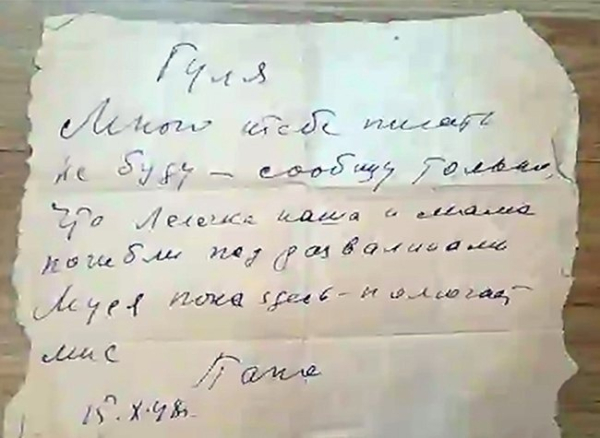 Гуля
Много тебе писать
не буду – сообщу только,
что Лелечка наша и мама
погибли под развалинами
Муся пока здесь – помогает
мне
Папа
15.X.48г.